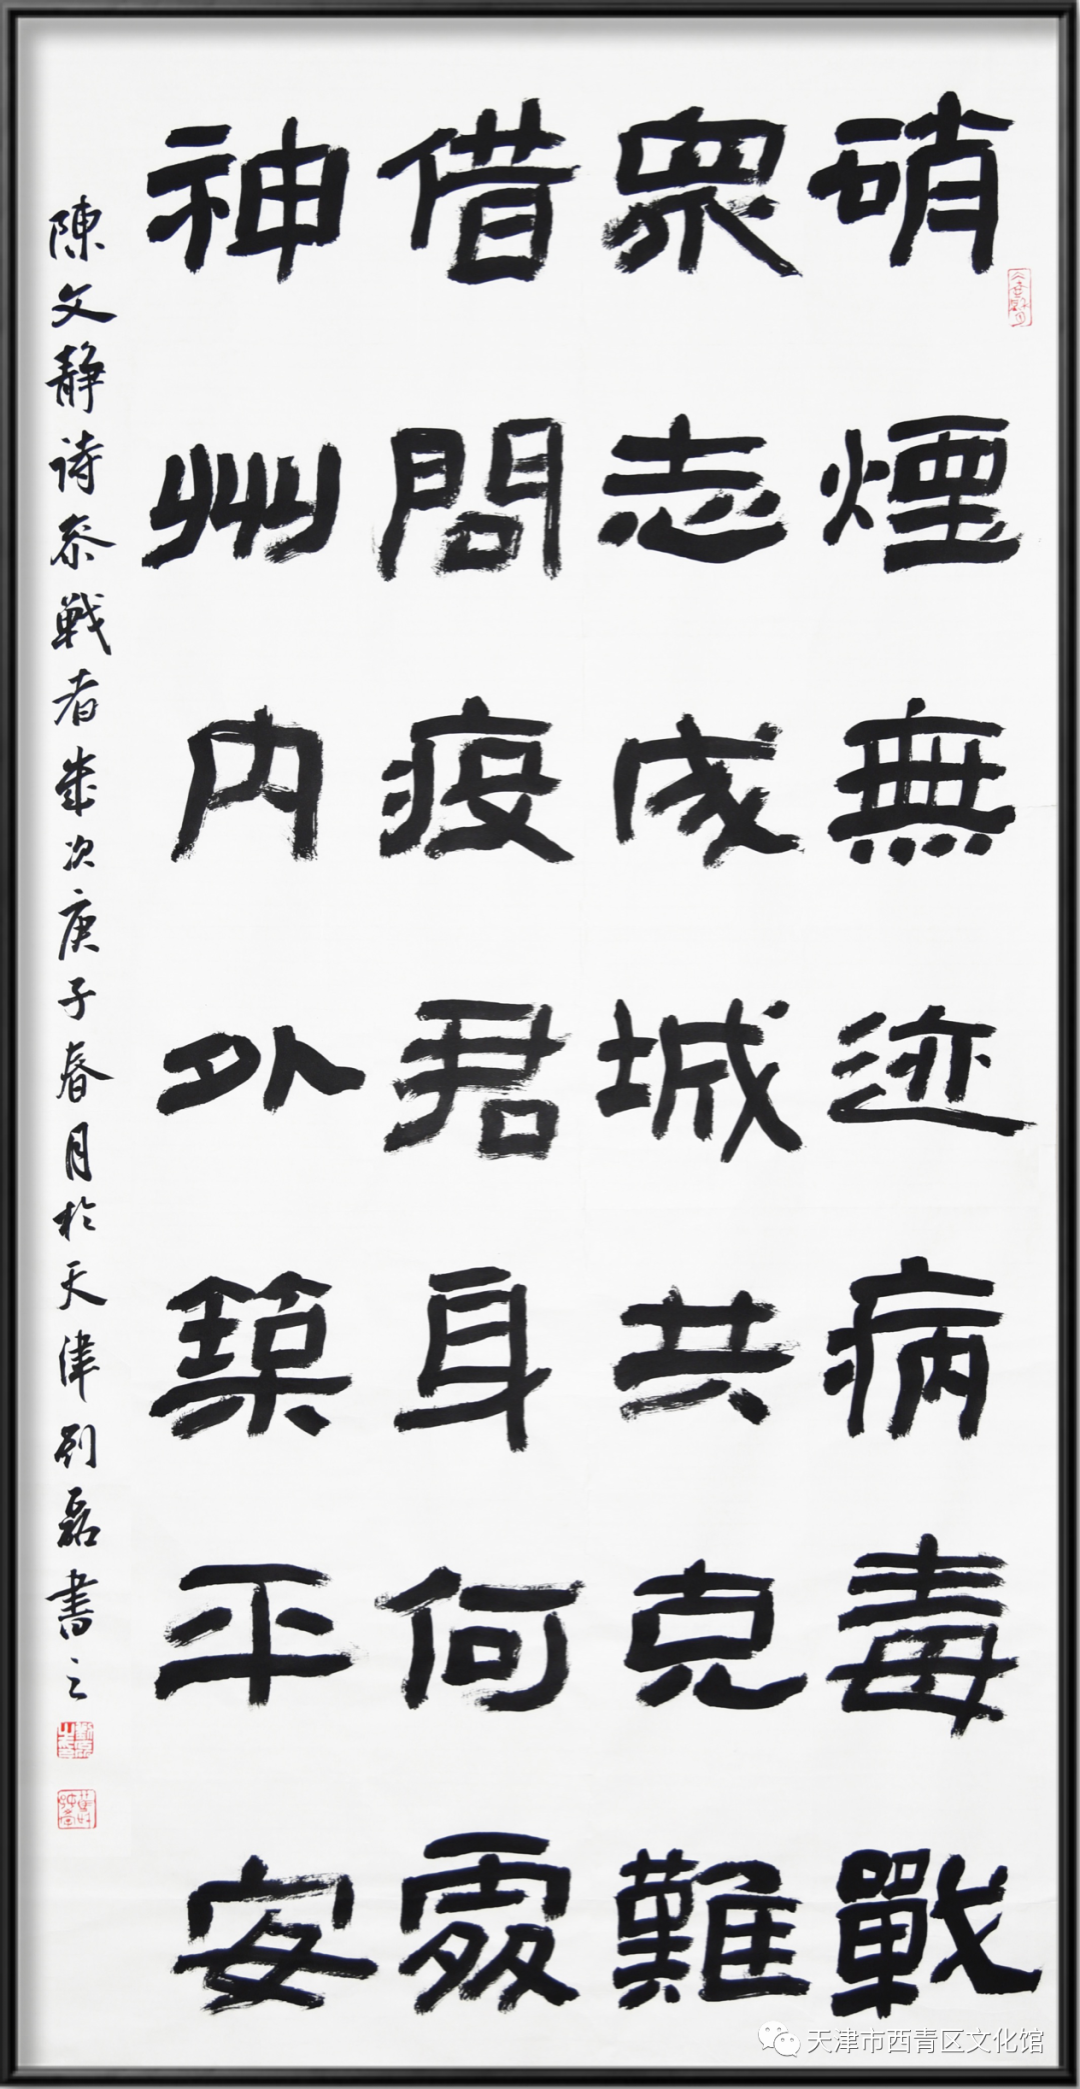 硝煙無迹病毒戰
眾志成城共克難
借問疫君身何處
神州內外築平安
陳文静诗叅戰者歲次庚子春月於天津刘磊書之
天津市西青区文化馆